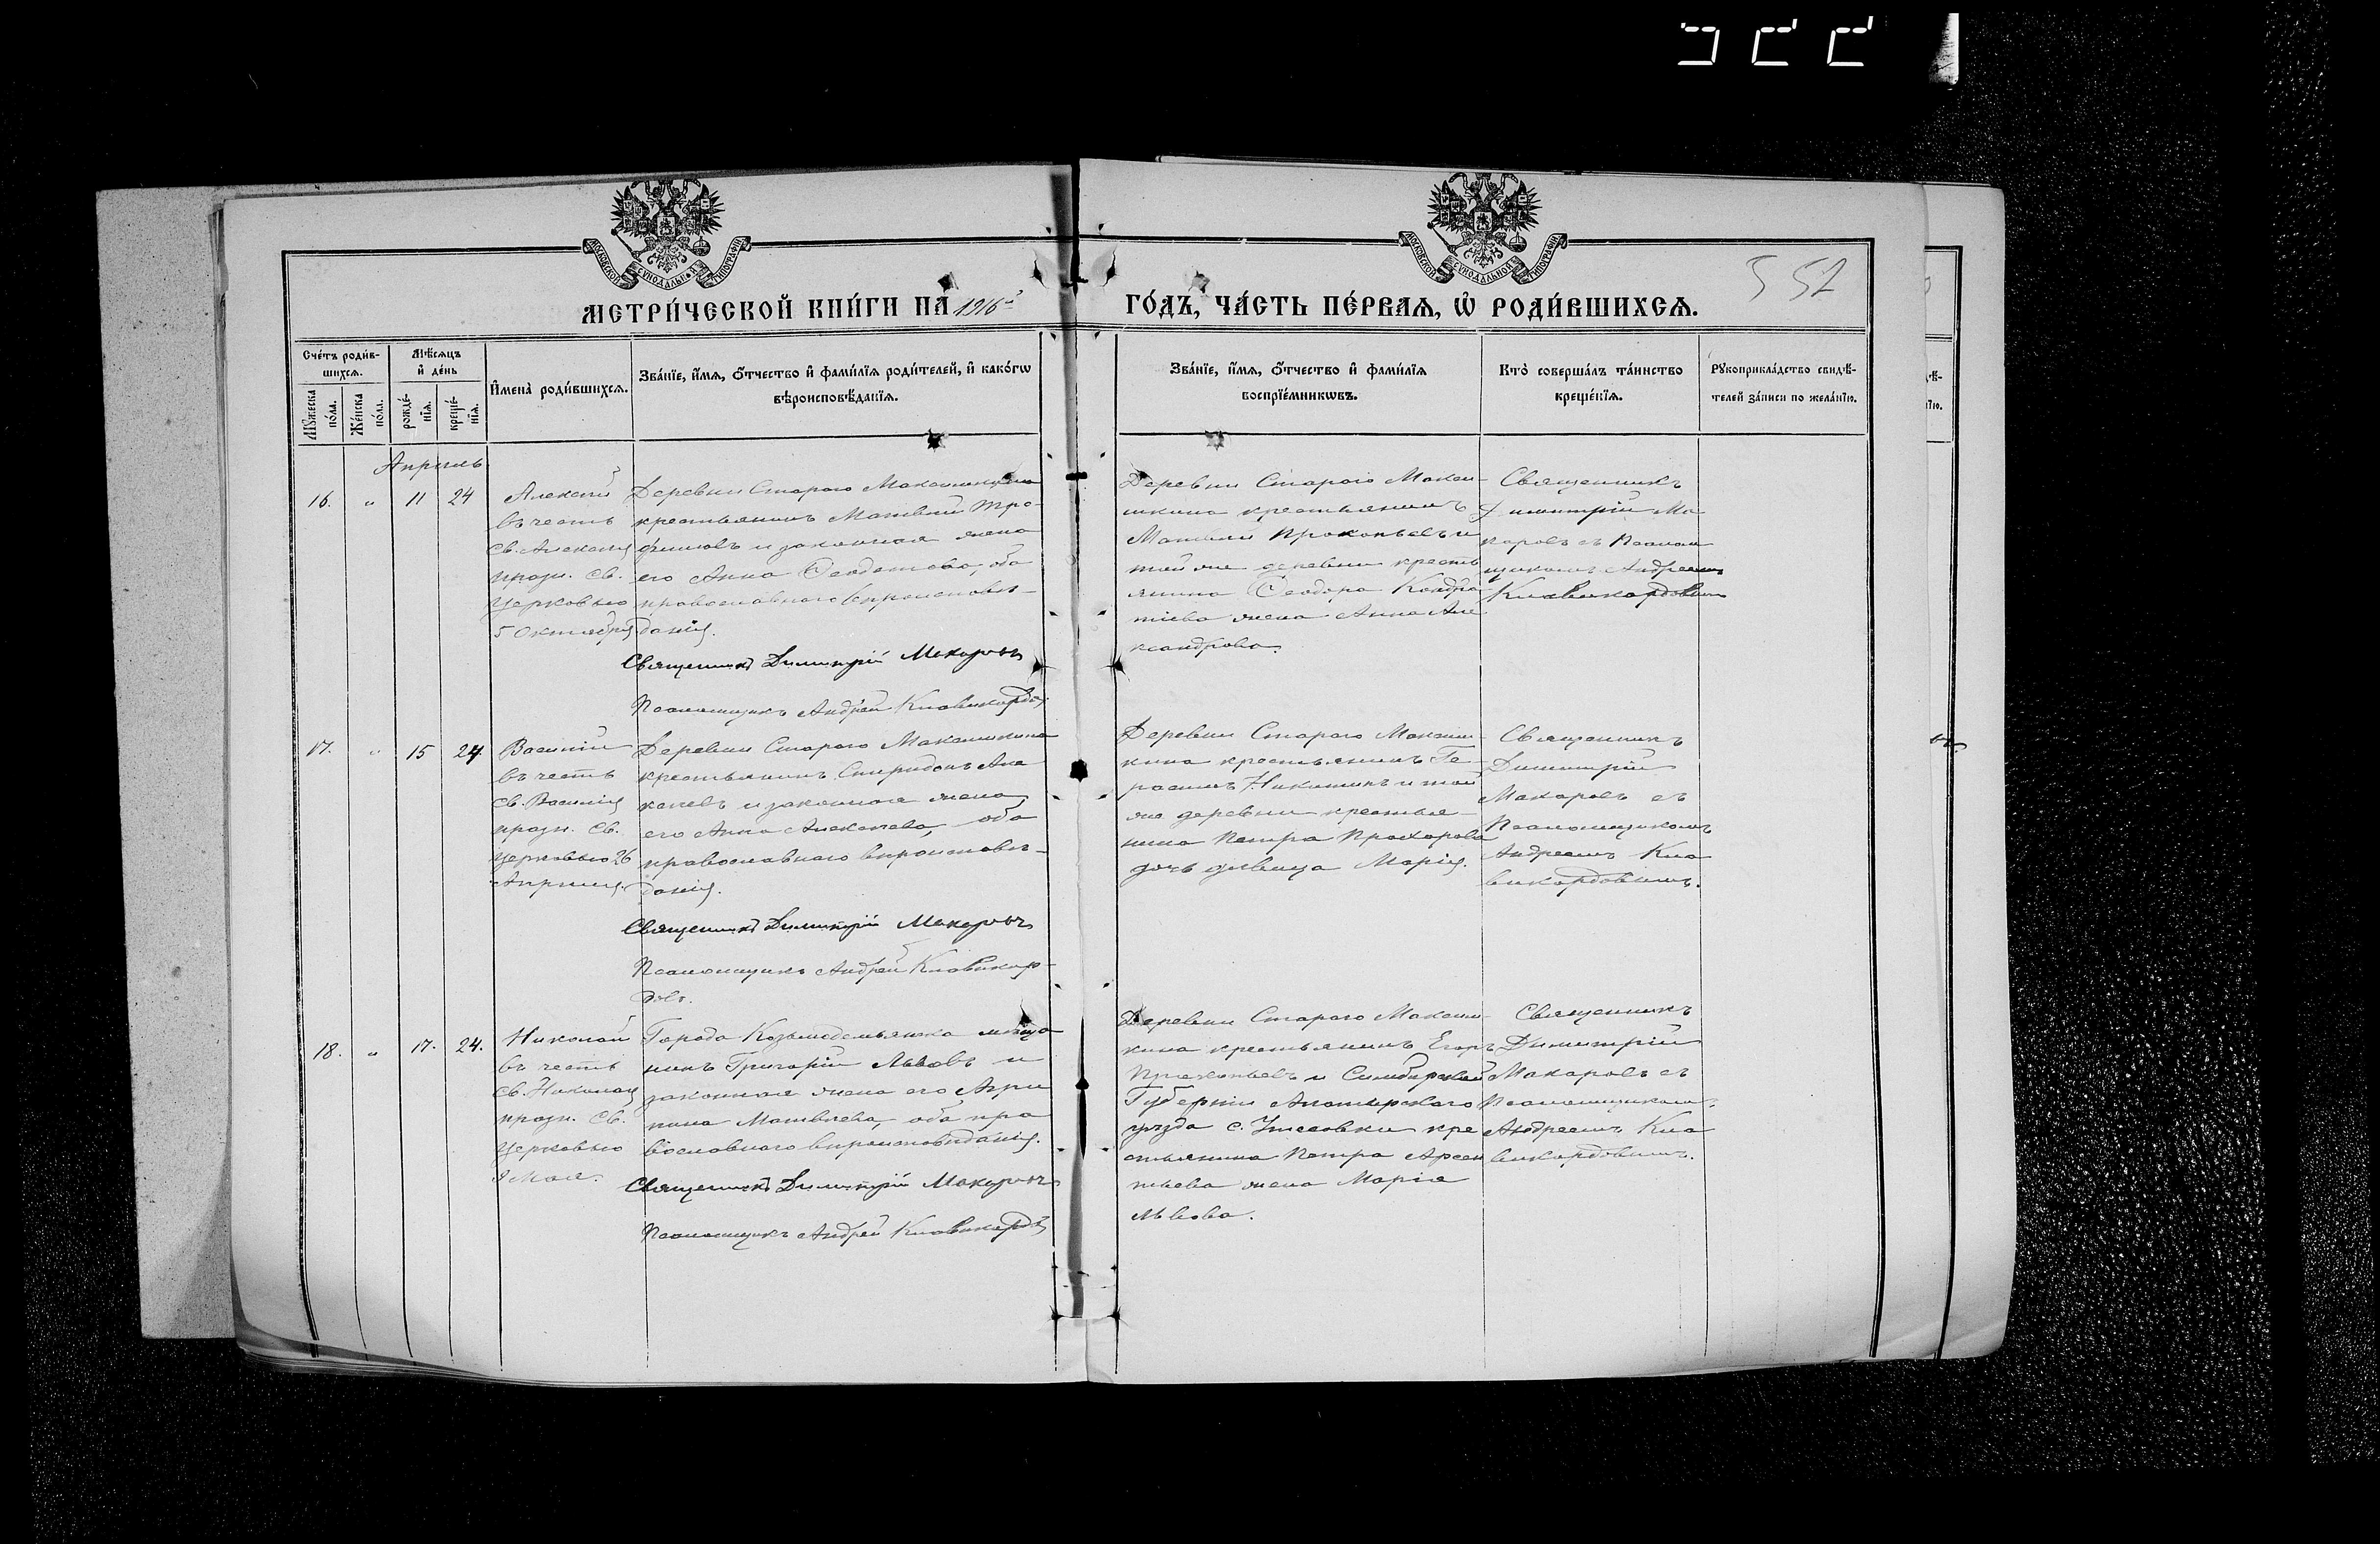 МОСКОВСКОЙ СѴНОДАЛЬНОЙ ТИПОГРАФІИ
МОСКОВСКОЙ СѴНОДАЛЬНОЙ ТИПОГРАФІИ
552
МЕТРИ́ЧЕСКОЙ КНИ́ГИ НА 1916
ГО́ДЪ, ЧА́СТЬ ПЕ́РВАѦ, Ѽ РОДИ́ВШИХСѦ.
Сче́тъ роди́в-
шихсѧ.
Мꙋ́жеска по́ла.
Же́нска по́ла.
Мѣ́сѧцъ
и҆ де́нь
рожде́-
нїѧ.
креще́-
нїѧ.
И҆мена̀ роди́вшихсѧ.
Зва́нїе, и҆́мѧ, ѻ҆́тчество и҆ фами́лїѧ роди́телей, и҆ како́гѡ
вѣроисповѣ́данїѧ.
Зва́нїе, и҆́мѧ, ѻ҆́тчество и҆ фами́лїѧ
воспрїе́мникѡвъ.
Кто̀ соверша́лъ та́инство
креще́нїѧ.
Рꙋкоприкла́дство свидѣ́-
телей за́писи по жела́нїю.
Апрѣль
16. " 11 24
Алексѣй
въ честь
Св. Алексія
празн. Св.
Церковью
5 Октября
Деревни Стараго Максимкина
крестьянинъ Матвѣй Тро-
фимовъ и законная жена
его Анна Ѳеодотова, оба
православнаго вѣроисповѣ-
данія.
Священникъ Димитрій Макаровъ
Псаломщикъ Андрей Клавикордовъ
Деревни Стараго Макси-
мкина крестьянинъ
Прокопьевъ и
той же деревни кресть
янина Ѳеодора Кондра
тіева жена Анна Але
ксандрова.
Священникъ
Димитрій Ма
каровъ съ Псалом
щикомъ Андреемъ
Клавикордовымъ
17. " 15 24
Василій
въ честь
Св. Василія
празн. Св.
Церковью 26
Апрѣля.
Деревни Стараго Максимкина
крестьянинъ Спиридонъ
и законная жена
его Анна Алексѣева, оба
православнаго вѣроисповѣ-
данія.
Священникъ Димитрій Макаровъ
Псаломщикъ Андрей Клавикор-
довъ.
Деревни Стараго Максим-
кина крестьянинъ Ге-
расимъ Никитинъ и той
же деревни крестья-
нина Петра Прохорова
дочь дѣвица Марія.
Священникъ
Димитрій
Макаровъ съ
Псаломщикомъ
Андреемъ Кла
викордовымъ.
18. " 17. 24.
Николай
въ честь
Св. Николая
празн. Св.
Церковью
9 Мая.
Города Козьмодемьянска мѣща
нинъ Григорій Львовъ и
законная жена его Агри
пина Матвѣева, оба пра
вославнаго вѣроисповѣданія.
Священникъ Димитрій Макаровъ
Псаломщикъ Андрей Клавикордовъ
Деревни Стараго Максим-
кина крестьянинъ Егоръ
Прокопьевъ и Симбирской
Губерніи Алатырскаго
уѣзда с. кре
стьянина Петра Арсен
тьева жена Марія
Львова.
Священникъ
Димитрій
Макаровъ съ
Псаломщикомъ
Андреемъ Кла
викордовымъ.